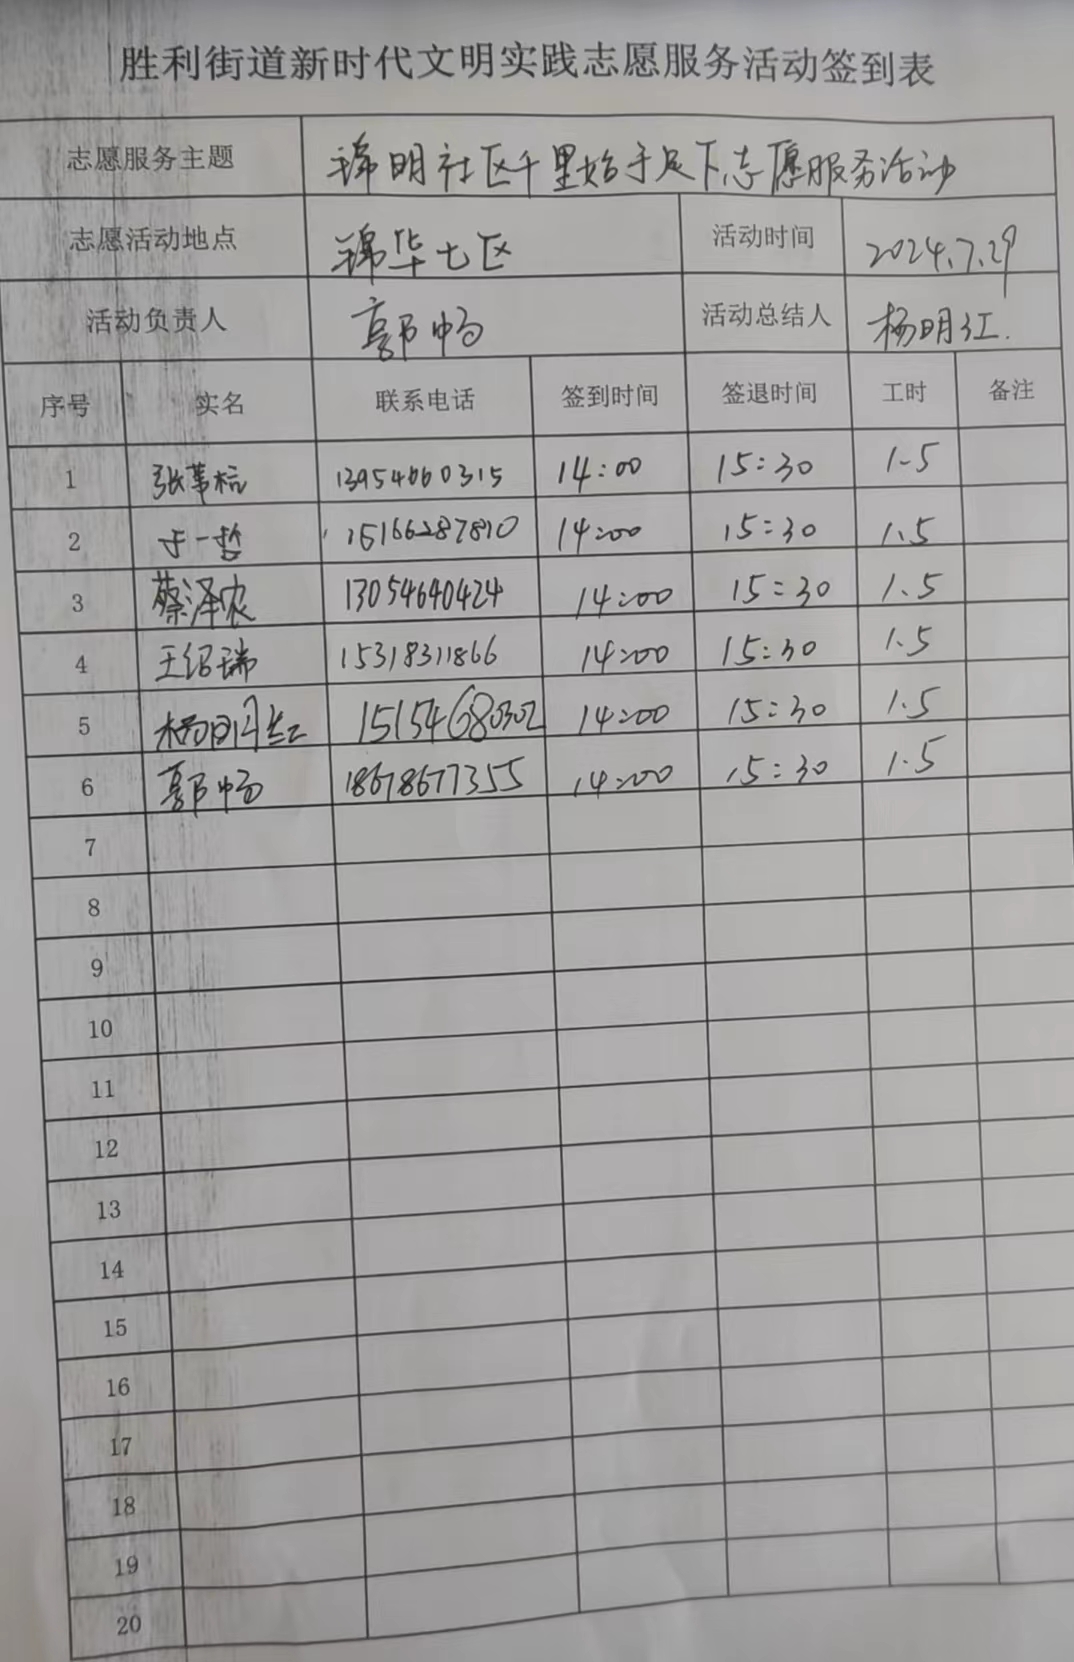 胜利街道新时代文明实践志愿服务活动签到表
志愿服务主题 锦明社区千里始于足下志愿服务活动
志愿活动地点 锦华七区 活动时间 2024.7.29
活动负责人 郭畅 活动总结人 杨明江.
序号 实名 联系电话 签到时间 签退时间 工时 备注
1 张 13954660315 14:00 15:30 1.5
2 于一哲 15166287810 14:00 15:30 1.5
3 蔡泽农 13054640424 14:00 15:30 1.5
4 王绍瑞 15318311866 14:00 15:30 1.5
5 杨明红 15154680302 14:00 15:30 1.5
6 郭畅 18678677355 14:00 15:30 1.5
7
8
9
10
11
12
13
14
15
16
17
18
19
20